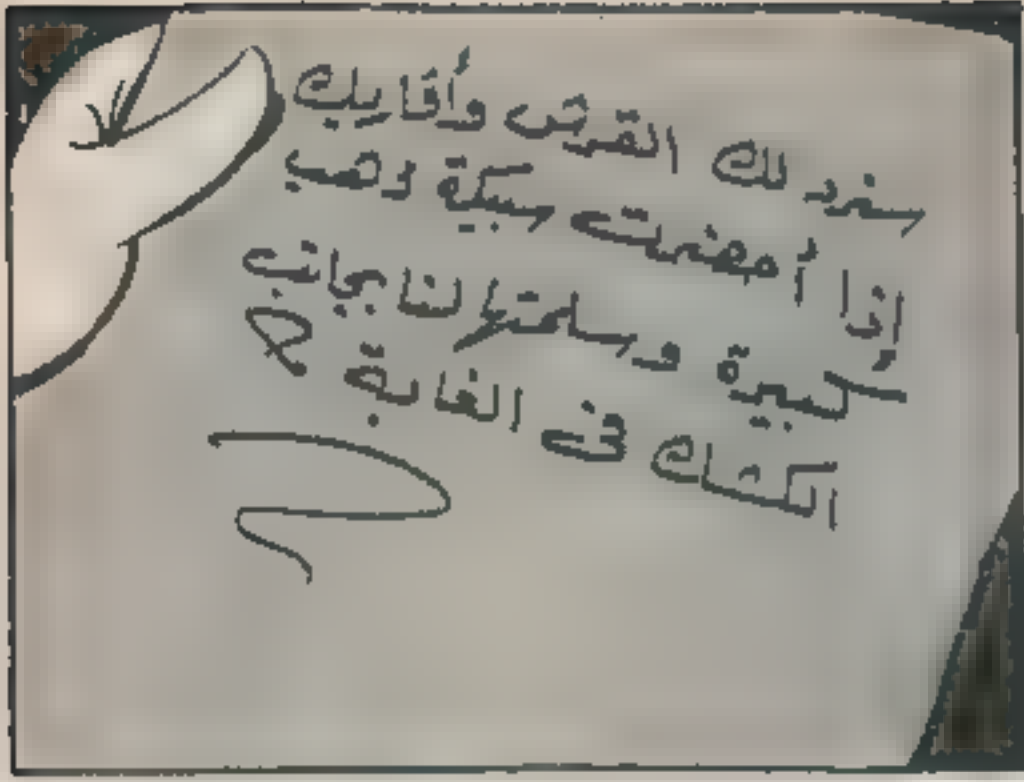 سنرد لك القرش وأقاربك
إذا أحضرت سبيكة ذهب
كبيرة وسلمتها لنا بجانب
الكشك في الغابة